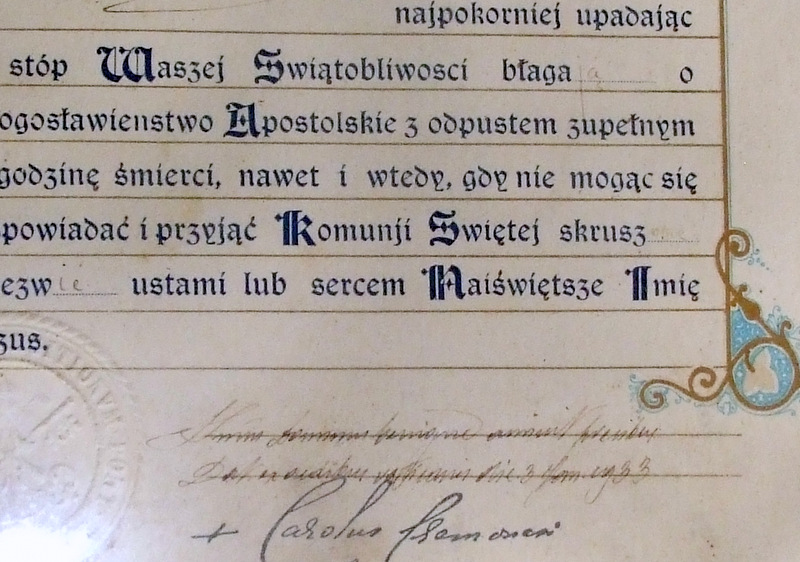 najpokorniej upadając
stóp Waszej Swiątobliwosci błaga o
ogosławienstwo Apostolskie z odpustem zupełnym
godzinę śmierci, nawet i wtedy, gdy nie mogąc się
powiadać i przyjąć Komunji Swiętej skrusz
ezwie ustami lub sercem Naiświętsze Imię
zus.
die 3
+ Carolus